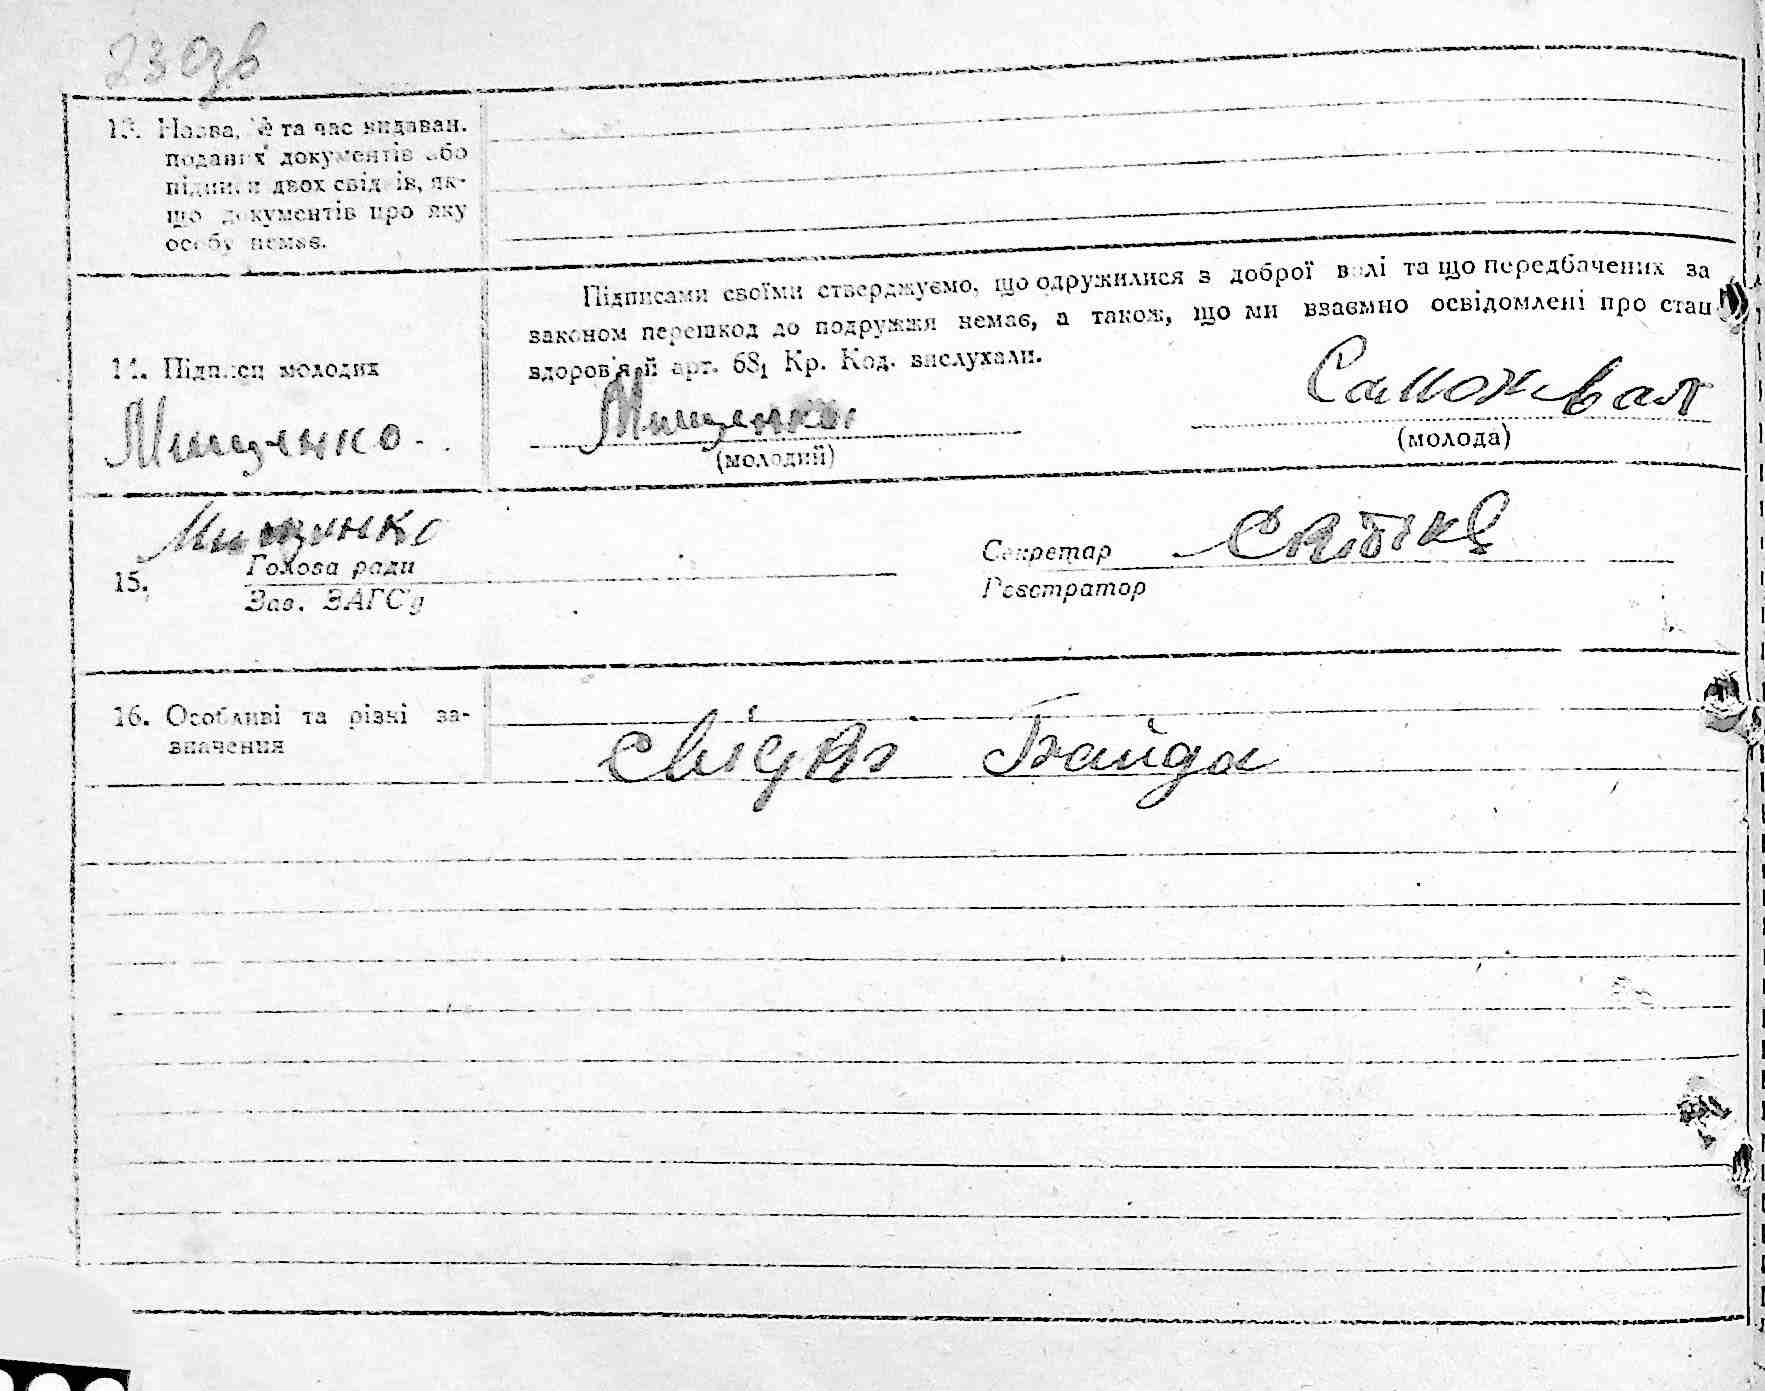 23 Озв
13. Назва, № та час видаван.
поданих документів або
підписи двох свідків, як-
що документів про яку
особу немає.
Підписами своїми стверджуємо, що одружилися з доброї волі та що передбачених за
законом перешкод до подружжя немає, а також, що ми взаємно освідомлені про стан
здоров'я й арт. 68₁ Кр. Код. вислухали.
14. Підписи молодих
Мищенко
Мищенко
(молодий)
Саможвал
(молода)
Мищенко
15.
Голова ради
Зав. ЗАГС'у
Секретар
Реєстратор
16. Особливі та різні за-
значення
Байда